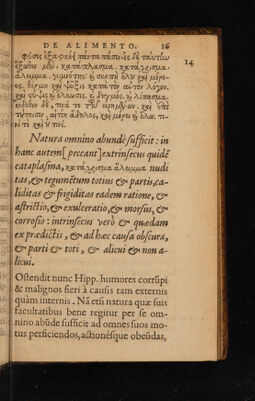 DE ALIMENTO. 16
14
φύσις ἐξαρκέει πάντα πᾶσιν. ἐς δὲ ταύτην
ἔξωθεν μὲν, κατάπλασμα, κατάχρισμα,
ἄλειμμα, γυμνότης, ἢ σκέπη ὅλου καὶ μέρεος,
θέρμη καὶ ψῦξις κατὰ τὸν αὐτὸν λόγον,
καὶ στύψις, ἢ ἕλκωσις, ἢ δηγμὸς, ἢ λίπασμα.
ἔνδοθεν δὲ, τινά τε τῶν εἰρημένων, καὶ ἐπὶ
τούτοισιν, αἰτίη ἄδηλος, καὶ μέρει ἢ ὅλῳ,
τινὶ τε καὶ οὔ τινί.
Natura omnino abundè sufficit: in
hanc autem [peccant] extrinsecus quidē
cataplasma, κατάχρισμα ἄλειμμα nudi
tas, & tegumētum totius & partis, ca-
liditas & frigiditas eadem ratione, &
astrictio, & exulceratio, & morsus, &
corrosio: intrinsecus verò & quædam
ex prædictis, & ad hæc causa obscura,
& parti & toti, & alicui & non a-
licui.
Ostendit nunc Hipp. humores corrupi
& malignos fieri à causis tam externis
quàm internis. Nā etsi natura quæ suis
facultatibus bene regitur per se om-
nino abūde sufficit ad omnes suos mo-
tus perficiendos, actionésque obeūdas,